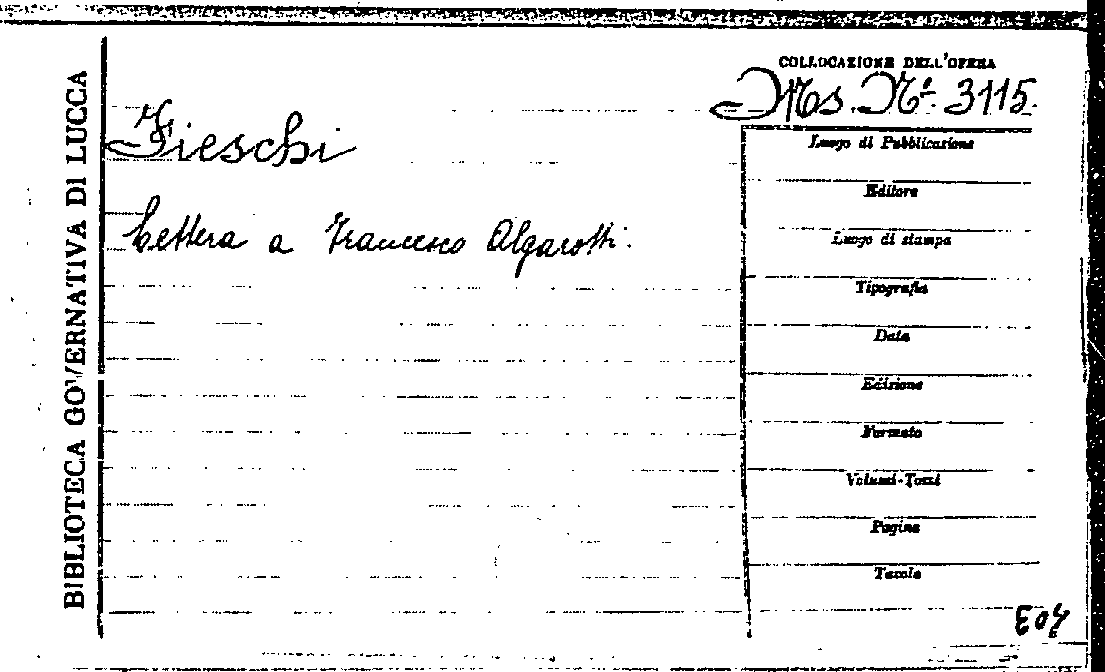 BIBLIOTECA GOVERNATIVA DI LUCCA
COLLOCAZIONE DELL'OPERA
Ms. N.º 3115.
Fieschi
Lettera a Francesco Algarotti.
Luogo di Pubblicazione
Editore
Luogo di stampa
Tipografia
Data
Edizione
Formato
Volumi-Tomi
Pagine
Tavole
E04